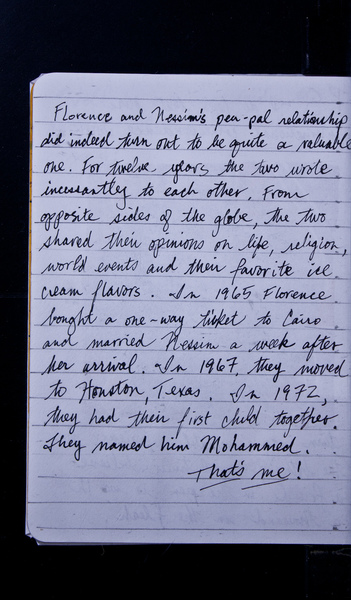 Florence and Nessim's pen-pal relationship
did indeed turn out to be quite a valuable
one. For twelve years the two wrote
incessantly to each other. From
opposite sides of the globe, the two
shared their opinions on life, religion,
world events and their favorite ice
cream flavors. In 1965 Florence
bought a one-way ticket to Cairo
and married Nessim a week after
her arrival. In 1967, they moved
to Houston, Texas. In 1972,
they had their first child together.
They named him Mohammed.
That's me!